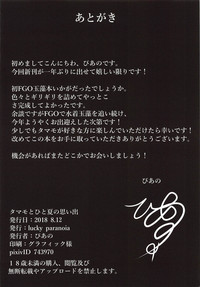 あとがき
初めましてこんにちわ、ぴあのです。
今回新刊が一年ぶりに出せて嬉しい限りです！
初FGO玉藻本いかがだったでしょうか。
色々とギリギリを詰めてやっとこ
さ完成してよかったです。
余談ですがFGOで水着玉藻を追い続け、
今年ようやくお出迎えした次第です。
少しでもタマモが好きな方に喜んでいただけたら幸いです！
改めてこの本をお手に取っていただきありがとうございます。
機会があればまたどこかでお会いしましょう！
ぴあの
タマモとひと夏の思い出
発行日：2018 8.12
発行：lucky paranoia
発行者：ぴあの
印刷：グラフィック様
pixivID 743970
18歳未満の購入、閲覧及び
無断転載やアップロードを禁止します。